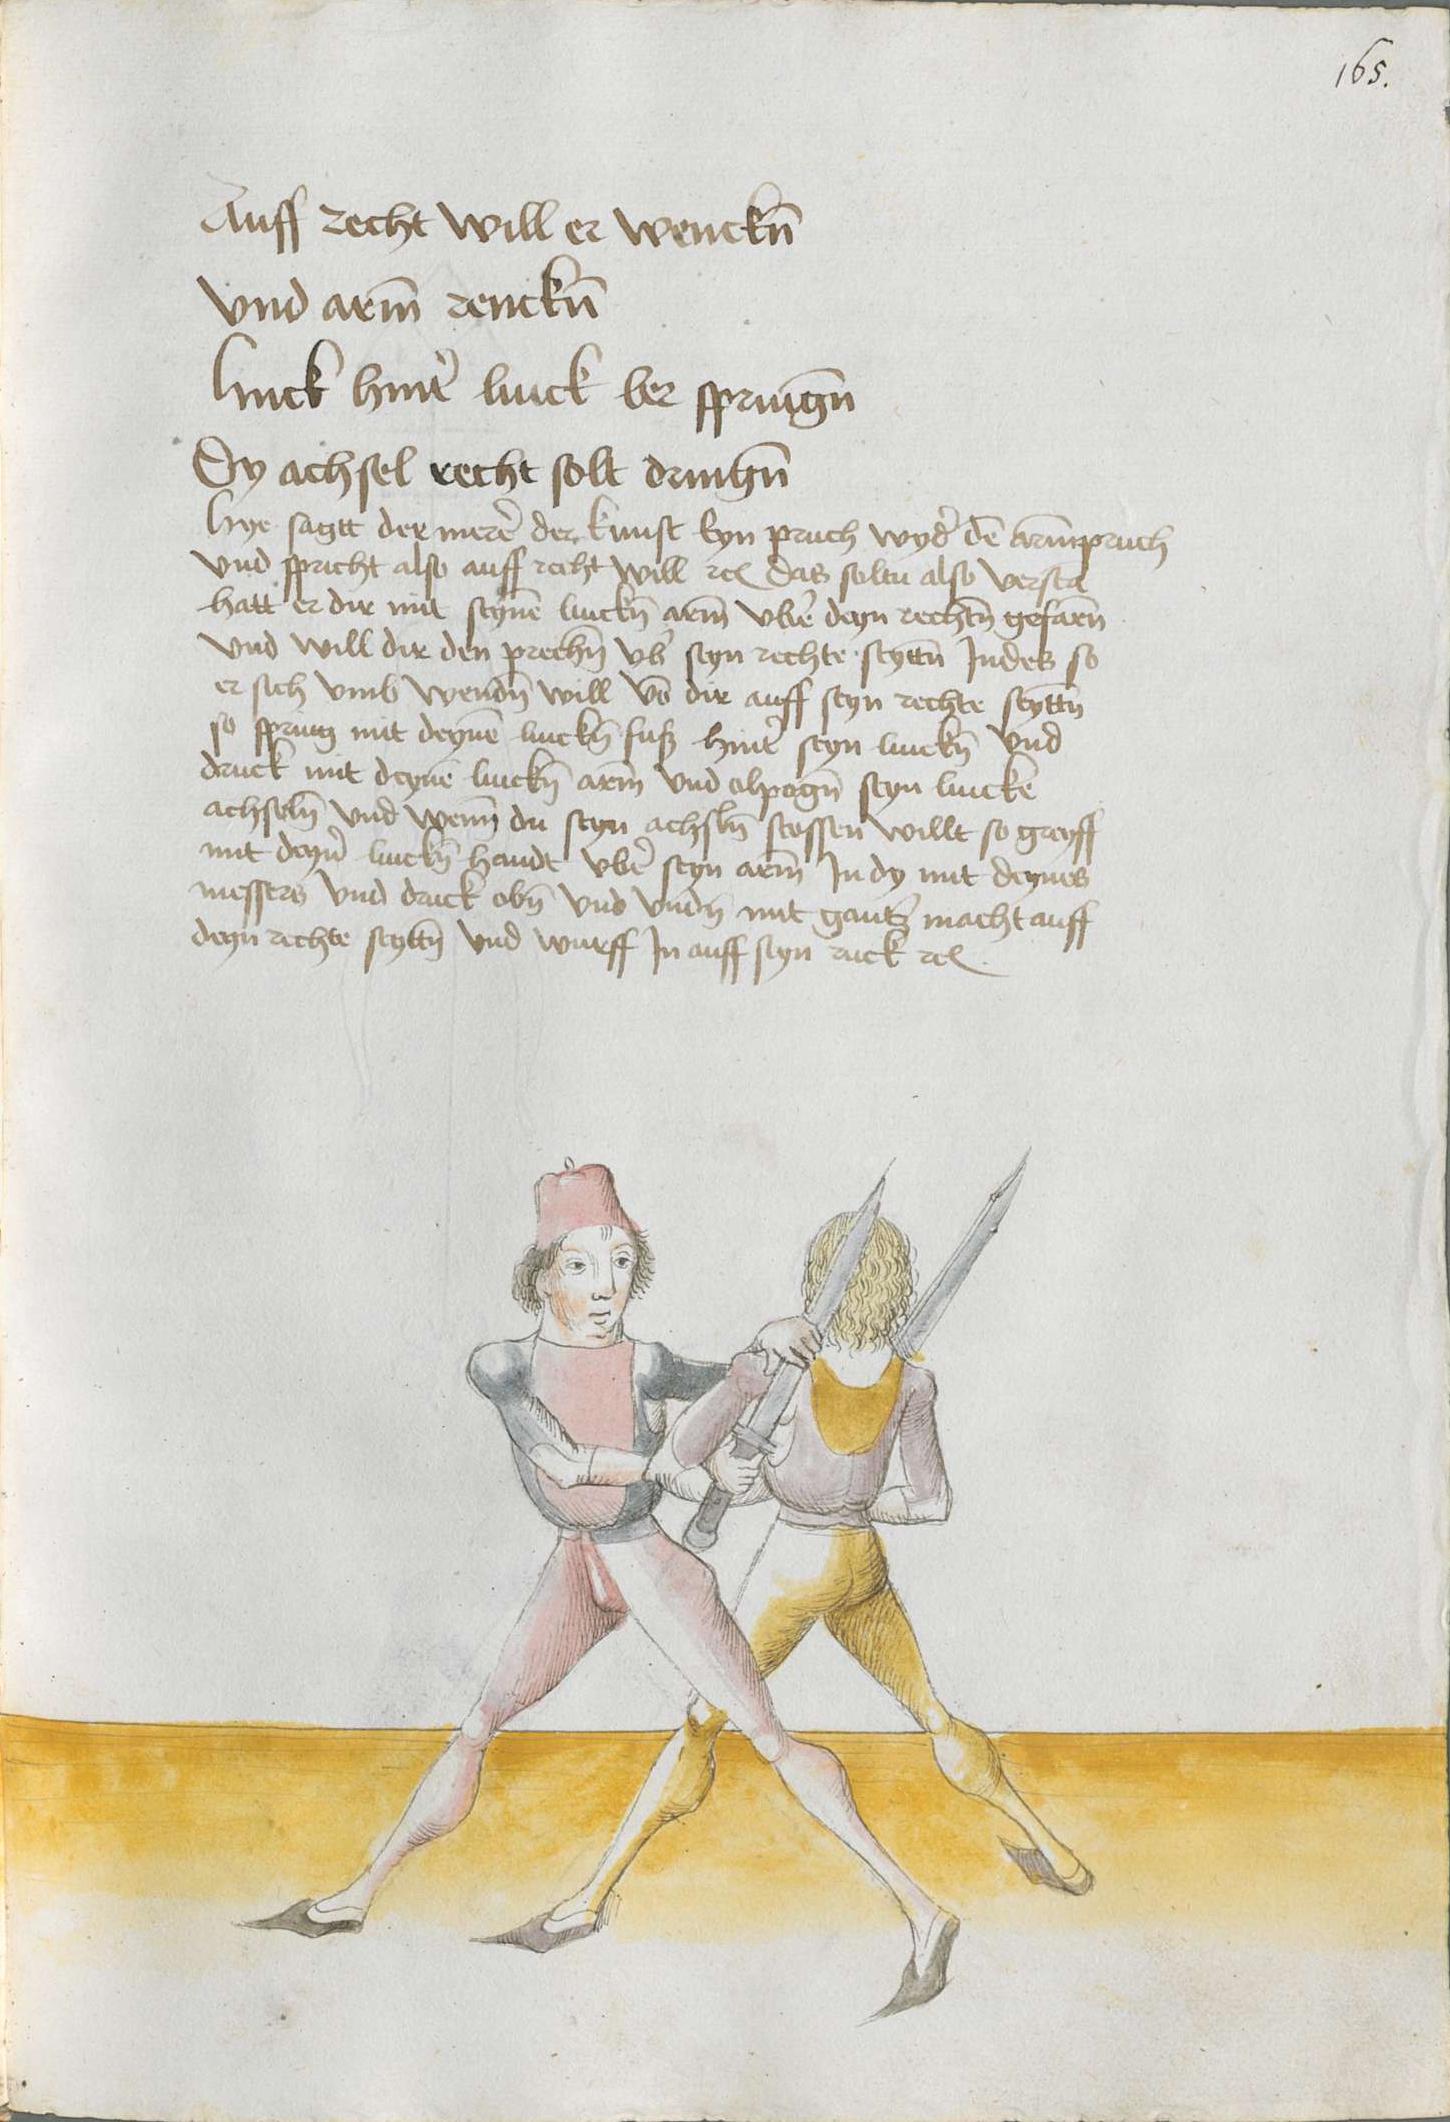 165.
Auff recht will er wenckn̄
vnd arm̄ renckn̄
Linck hint̕ linck ver sprinḡn
Dy achsel recht solt drinḡn
Hye sagtt der mere̕ der kunst Eyn pruch wyd̕ de̅ arm̄pruch
vnd spricht also auff recht will ꝛcꝭ das soltu also versta̅
hatt er dir mit seyne̅ linckn̄ arm̄ vbe̕ deyn rechtn̄ gefarn̄
vnd will dir den prechn̄ vb̕ seyn rechte seyttn̄ Indes so
er sich vmb wendn̄ will vo̅ dir auff seyn rechte seyttn̄
so spring mit deyne̅ linckn̄ fuß hint̕ seyn linckn̄ vnd
druck mit deyne̅ linckn̄ arm̄ vnd elpogn̄ seyn lincke
achseln̄ vnd wenn̄ du seyn achsln̄ stossen willt so greyff
mit deyn̕ linckn̄ handt vbe̕ seyn arm̄ In dy mit deynes
messers vnd druck obn̄ vnd vndn̄ mit gantz̕ macht auff
deyn rechte seyttn̄ vnd wurff In auff seyn ruck ꝛcꝭ